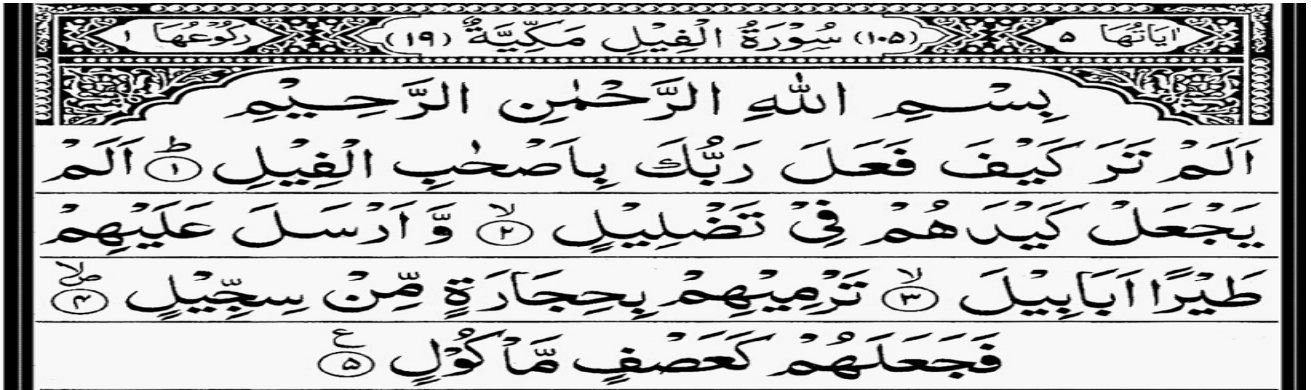 اٰيَاتُهَا ٥ (١٠٥) سُوْرَةُ الْفِيْلِ مَكِّيَّةٌ (١٩) رُكُوْعُهَا ١
بِسْمِ اللّٰهِ الرَّحْمٰنِ الرَّحِيْمِ
اَلَمْ تَرَ كَيْفَ فَعَلَ رَبُّكَ بِاَصْحٰبِ الْفِيْلِ ؕ ۱ اَلَمْ
يَجْعَلْ كَيْدَهُمْ فِيْ تَضْلِيْلٍ ۙ ۲ وَّ اَرْسَلَ عَلَيْهِمْ
طَيْرًا اَبَابِيْلَ ۙ ۳ تَرْمِيْهِمْ بِحِجَارَةٍ مِّنْ سِجِّيْلٍ ۪ۙ ۴
فَجَعَلَهُمْ كَعَصْفٍ مَّاْكُوْلٍ ع ۵